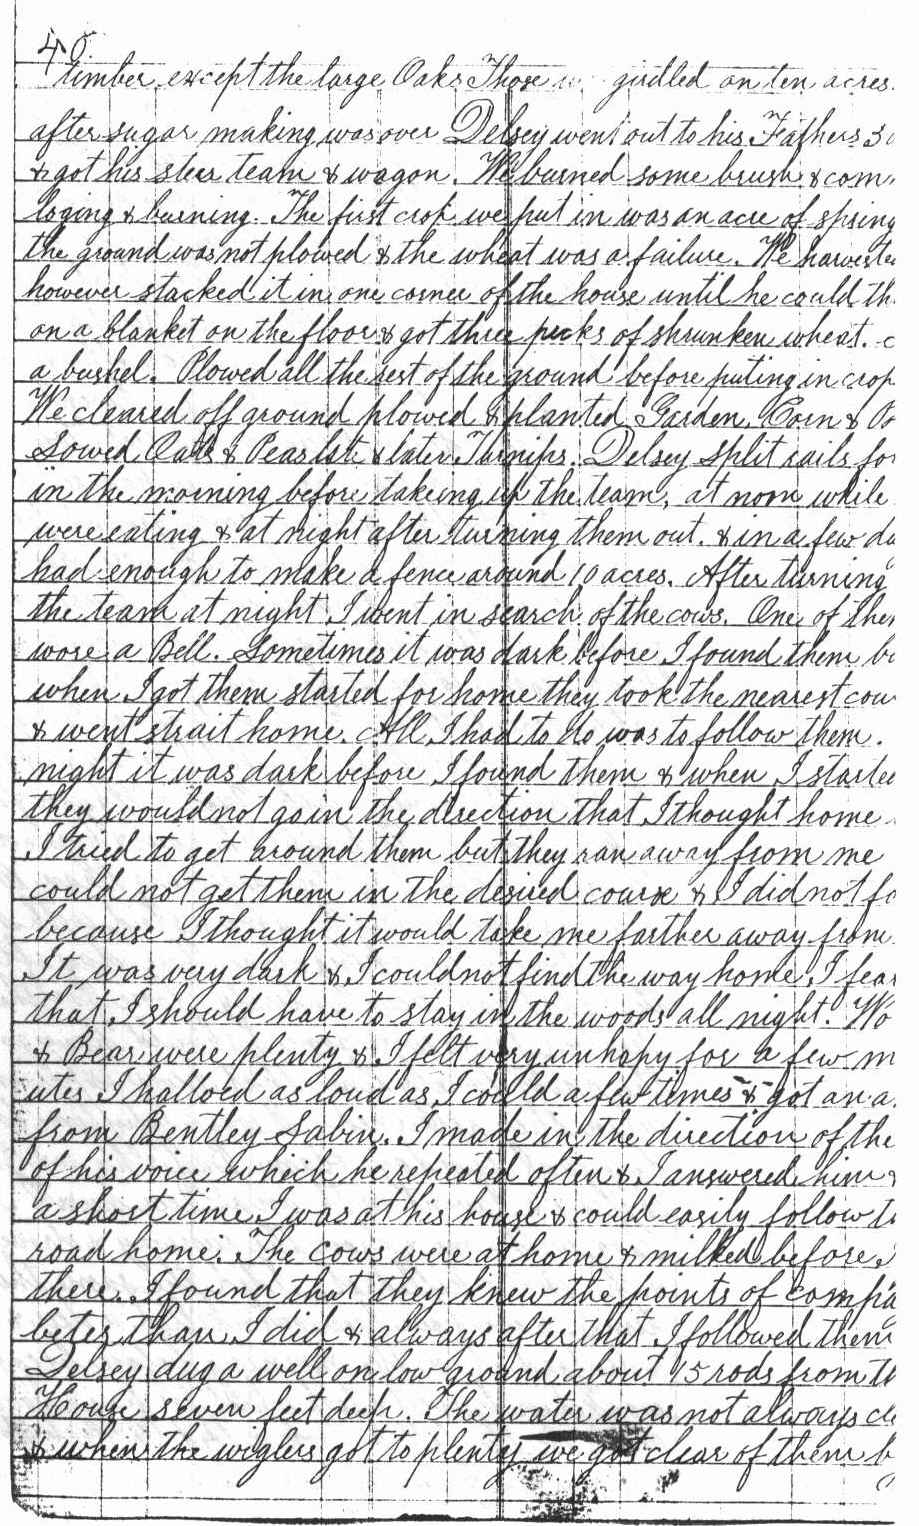 40
timber except the large Oaks Those girdled on ten acres.
after sugar making was over Delsey went out to his Fathers
& got his steer team & wagon. We burned some brush & com
loging & burning. The first crop we put in was an acre of spring
the ground was not plowed & the wheat was a failure. We harveste
however stacked it in one corner of the house until he could th
on a blanket on the floor & got three pecks of shrunken wheat.
a bushel. Plowed all the rest of the ground before puting in crop
We cleared off ground plowed & planted Garden, Corn &
Sowed Oats & Peas late & later Turnips. Delsey split rails for
in the morning before takeing up the team, at noon while
were eating & at night after turning them out. & in a few da
had enough to make a fence around 10 acres. After turning
the team at night I went in search of the cows. One of them
wore a Bell. Sometimes it was dark before I found them bu
when I got them started for home they took the nearest cour
& went strait home. All I had to do was to follow them.
night it was dark before I found them & when I starte
they would not go in the direction that I thought home
I tried to get around them but they ran away from me
could not get them in the desired course & I did not fo
because I thought it would take me farther away from
It was very dark & I could not find the way home, I fear
that I should have to stay in the woods all night. Wo
& Bear were plenty & I felt very unhapy for a few m
utes I halloed as loud as I could a few times & got an a
from Bentley Sabin. I made in the direction of the
of his voice which he repeated often & I answered him &
a short time I was at his house & could easily follow t
road home. The cows were at home & milked before
there. I found that they knew the points of compa
beter than I did & always after that I followed them
Delsey dug a well on low ground about 15 rods from th
House seven feet deep. The water was not always cle
& when the wiglers got to plenty we got clear of them b